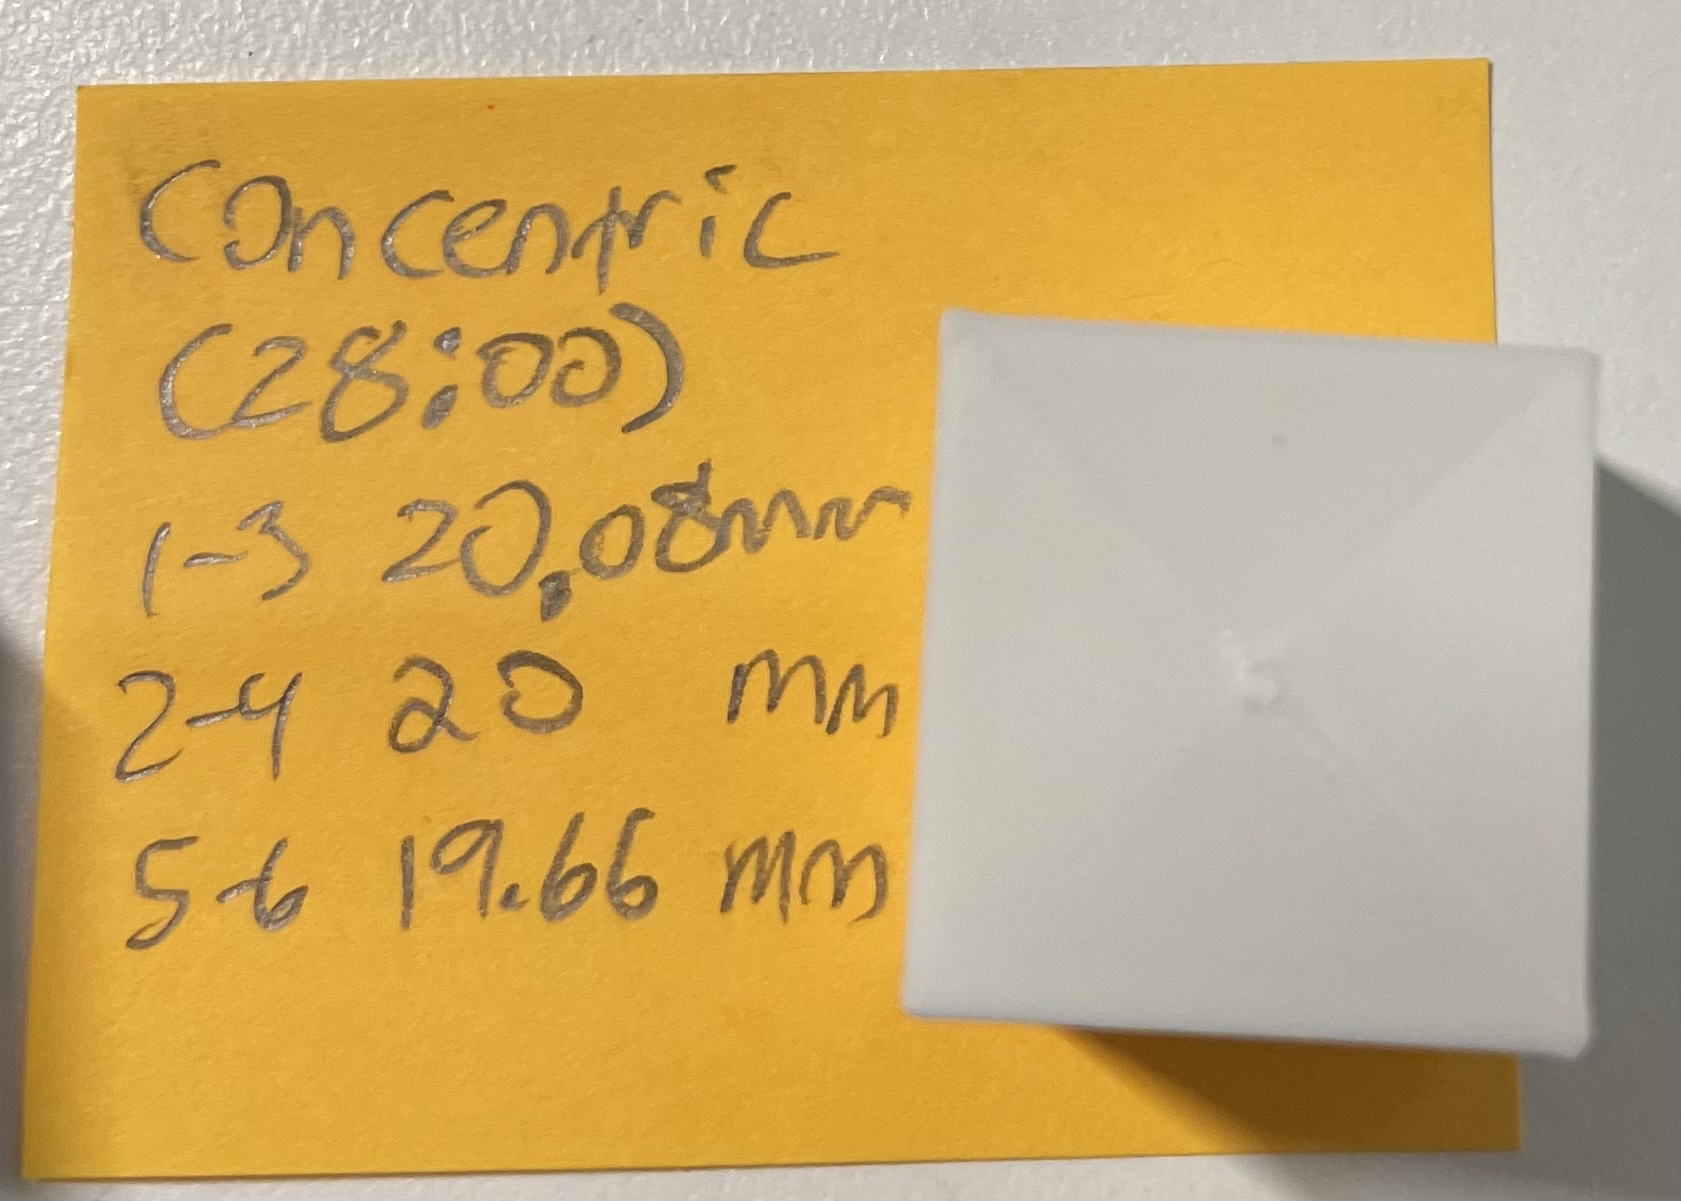 Concentric
(28:00)
1-3 20.08mm
2-4 20 mm
5-6 19.66 mm